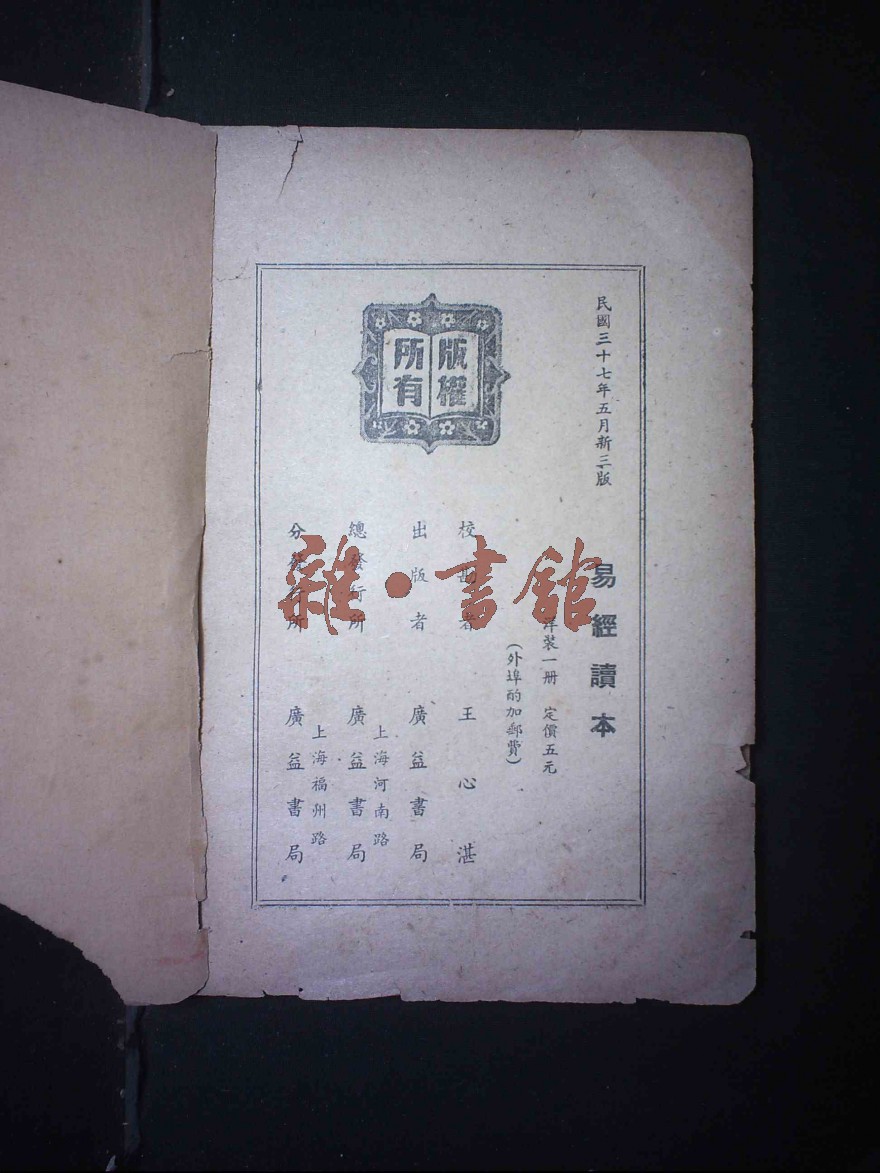 民國三十七年五月新三版
版權所有
易經讀本
洋裝一册 定價五元
（外埠酌加郵費）
校勘者 王心湛
出版者 廣益書局
上海河南路
總發行所 廣益書局
上海福州路
分發行所 廣益書局
雜·書館